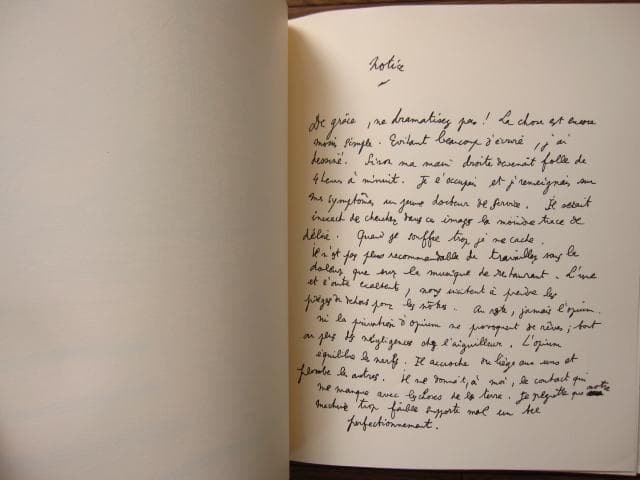 notice
De grâce, ne dramatisez pas ! La chose est encore
moins simple. Evitant beaucoup d'écrire, j'ai
dessiné. Sinon ma main droite devenait folle de
4 heures à minuit. Je l'occupai et j'renseignais sur
mes symptômes un jeune docteur de service. Il serait
inexact de chercher dans ces images la moindre trace de
délire. Quand je souffre trop je me cache.
Il n'est pas plus recommandable de travailler sous la
douleur que sur la musique de restaurant. L'une
et l'autre exaltent, nous invitent à prendre les
pièges du dehors pour les nôtres. Au reste, jamais l'opium
ni la privation d'opium ne provoquent de rêves ; tout
au plus des négligences chez l'aiguilleur. L'opium
équilibre les nerfs. Il accroche du liège aux uns et
plombe les autres. Il me donnait, à moi, le contact qui
me manque avec les choses de la terre. Je regrette que notre
machine trop faible supporte mal un tel
perfectionnement.